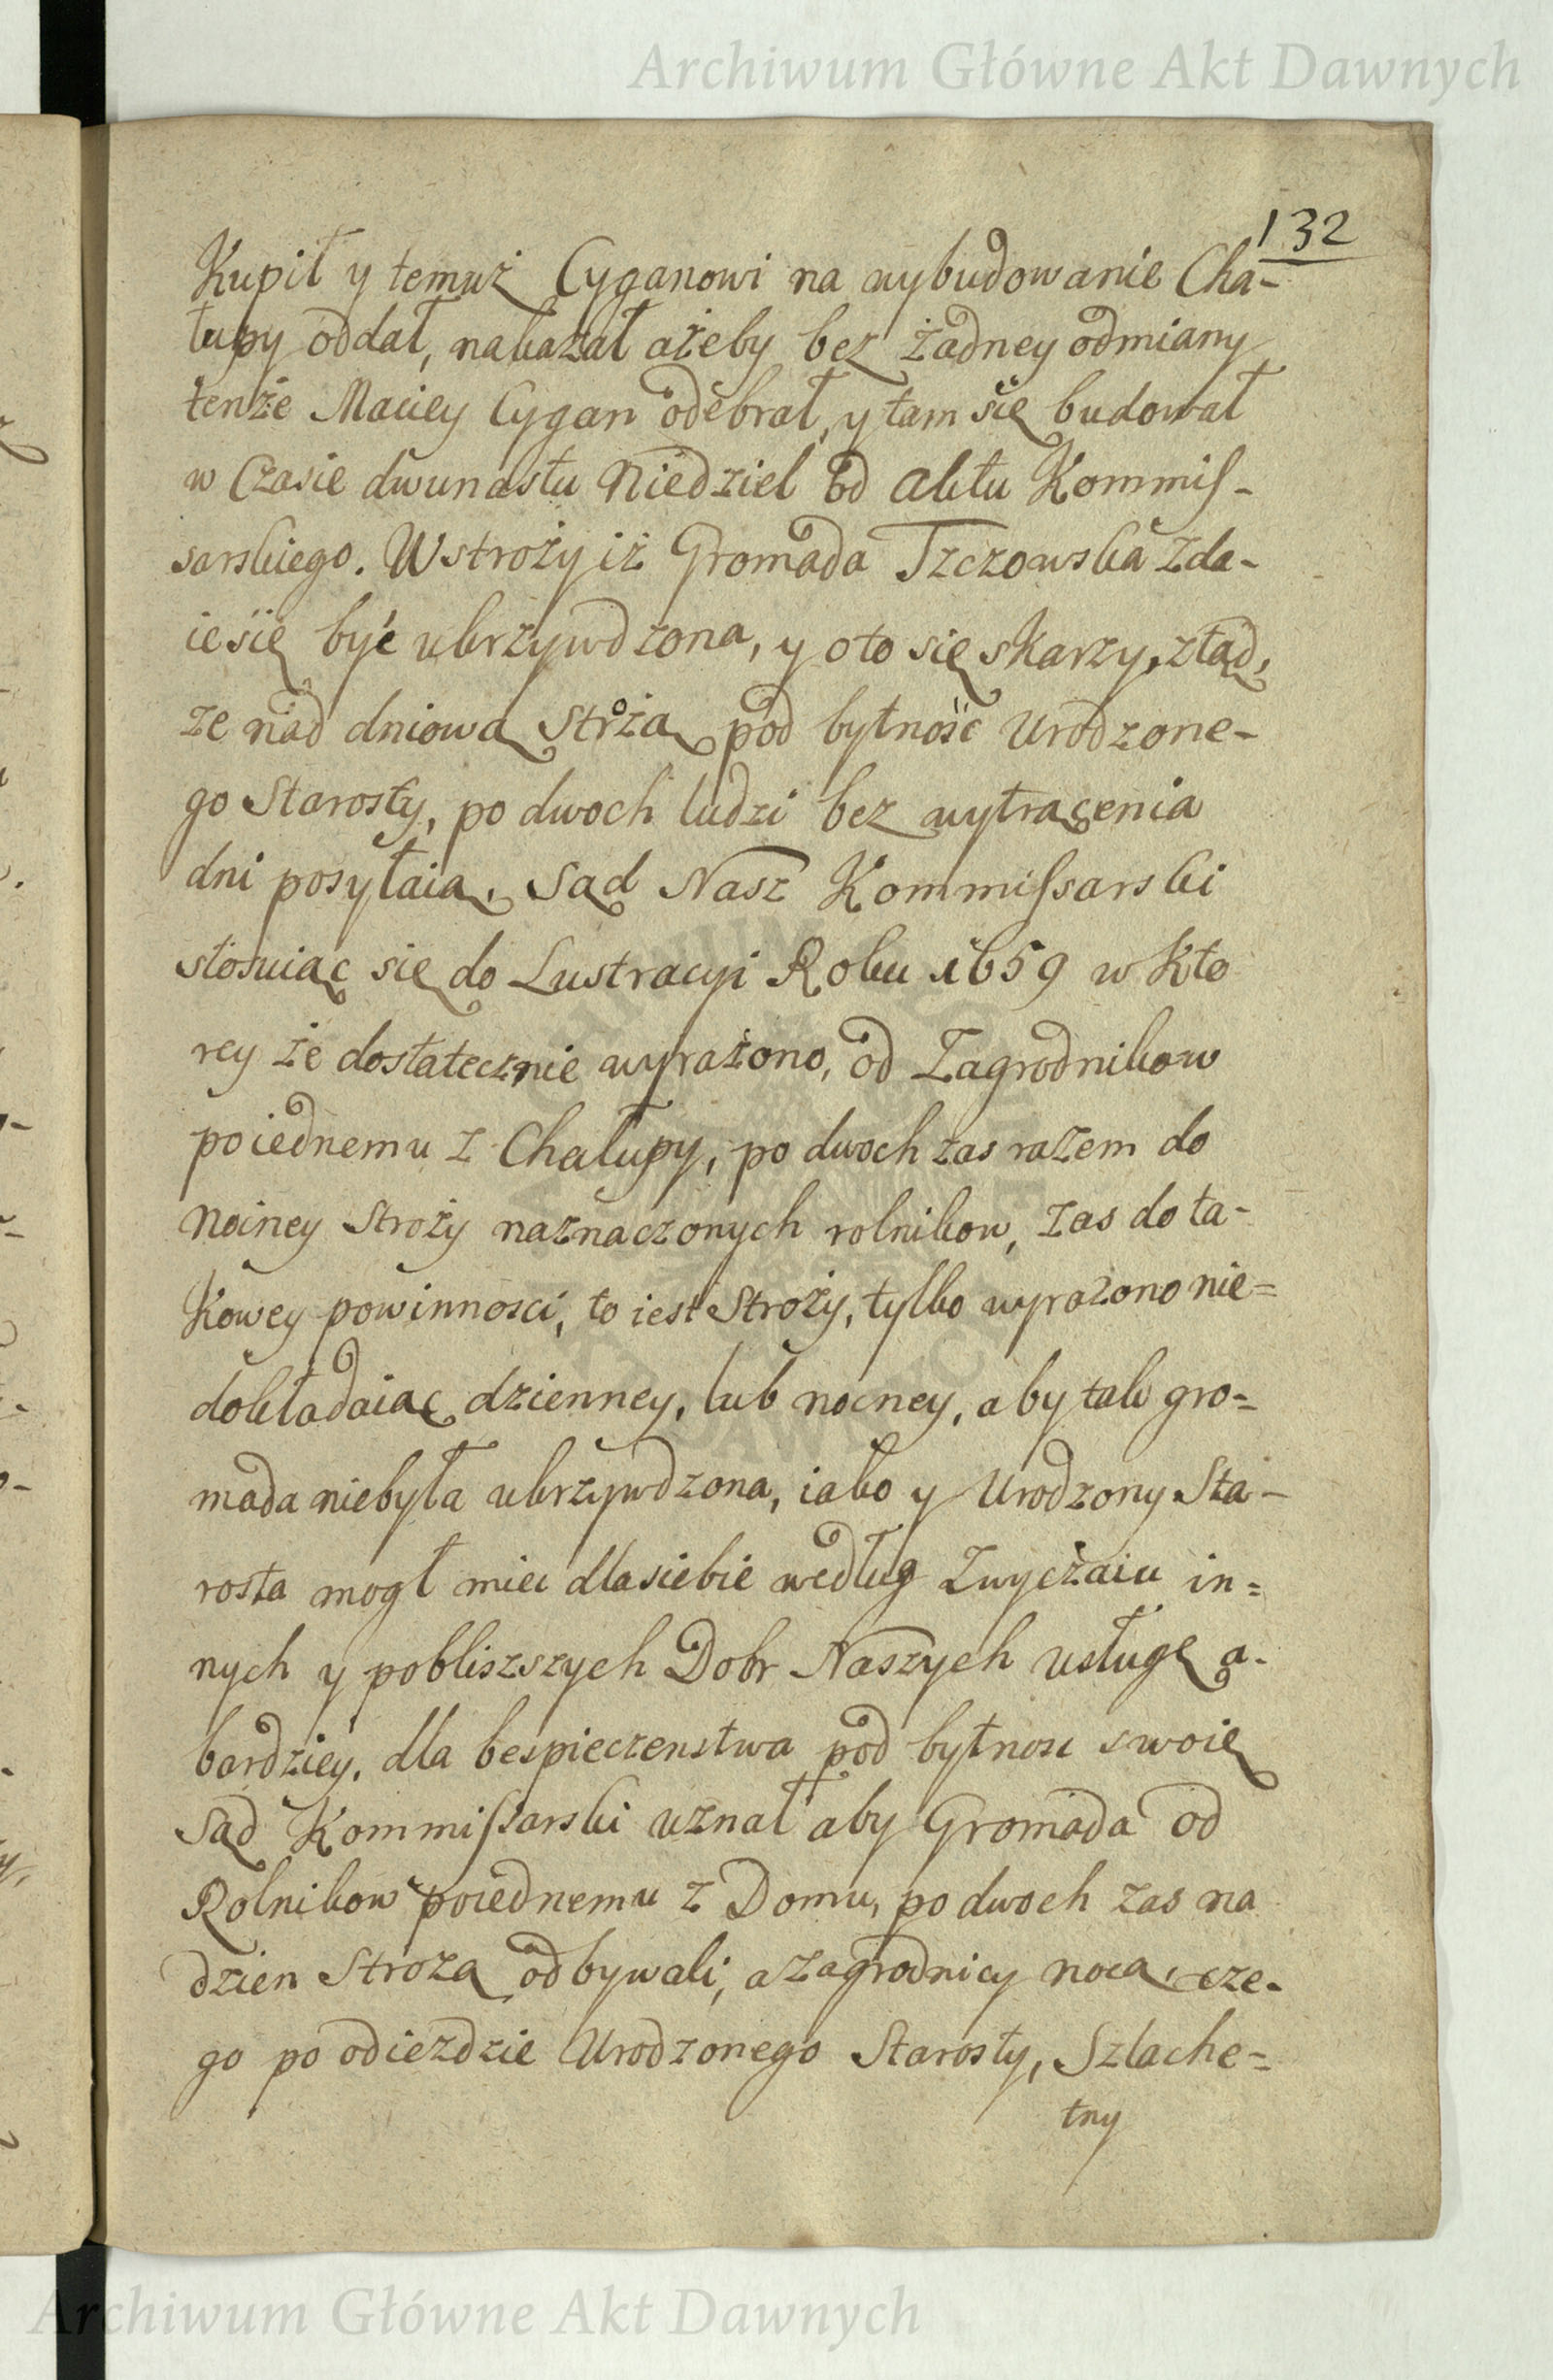 Archiwum Główne Akt Dawnych
132
Kupił y temuż Cyganowi na wybudowanie Cha-
łupy oddał, nakazał ażeby bez żadney odmiany
tenże Maciey Cygan odebrał, y tam się budował
w Czasie dwunastu Niedziel od Aktu Kommis-
sarskiego. W stroży iż Gromada Tzczowska zda-
ie się być ukrzywdzona, y o to się skarzy, ztąd,
ze nad dniową Stróżą pod bytność Urodzone-
go Starosty, po dwoch ludzi bez wytrącenia
dni posyłaią. Sąd Nasz Kommissarski
stosuiąc się do Lustracyi Roku 1659 w kto
rey że dostatecznie wyrażono, od Zagrodnikow
po iednemu z Chałupy, po dwoch zas razem do
Nocney Stroży naznaczonych rolnikow, zas do ta-
kowey powinnosci, to iest Stroży, tylko wyrażono nie=
dokładaiąc dzienney, lub nocney, aby tak gro=
mada niebyła ukrzywdzona, iako y Urodzony Sta-
rosta mogł miec dla siebie według Zwyczaiu in=
nych y pobliszszych Dobr Naszych usługę a-
bardziey, dla bespieczenstwa pod bytnosc swoię
Sąd Kommissarski uznał aby Gromada od
Rolnikow poiednemu z Domu, po dwoch zas na
dzien Strozą odbywali, a zagrodnicy nocą, cze-
go po odiezdzie Urodzonego Starosty, Szlache=
tny
Archiwum Główne Akt Dawnych